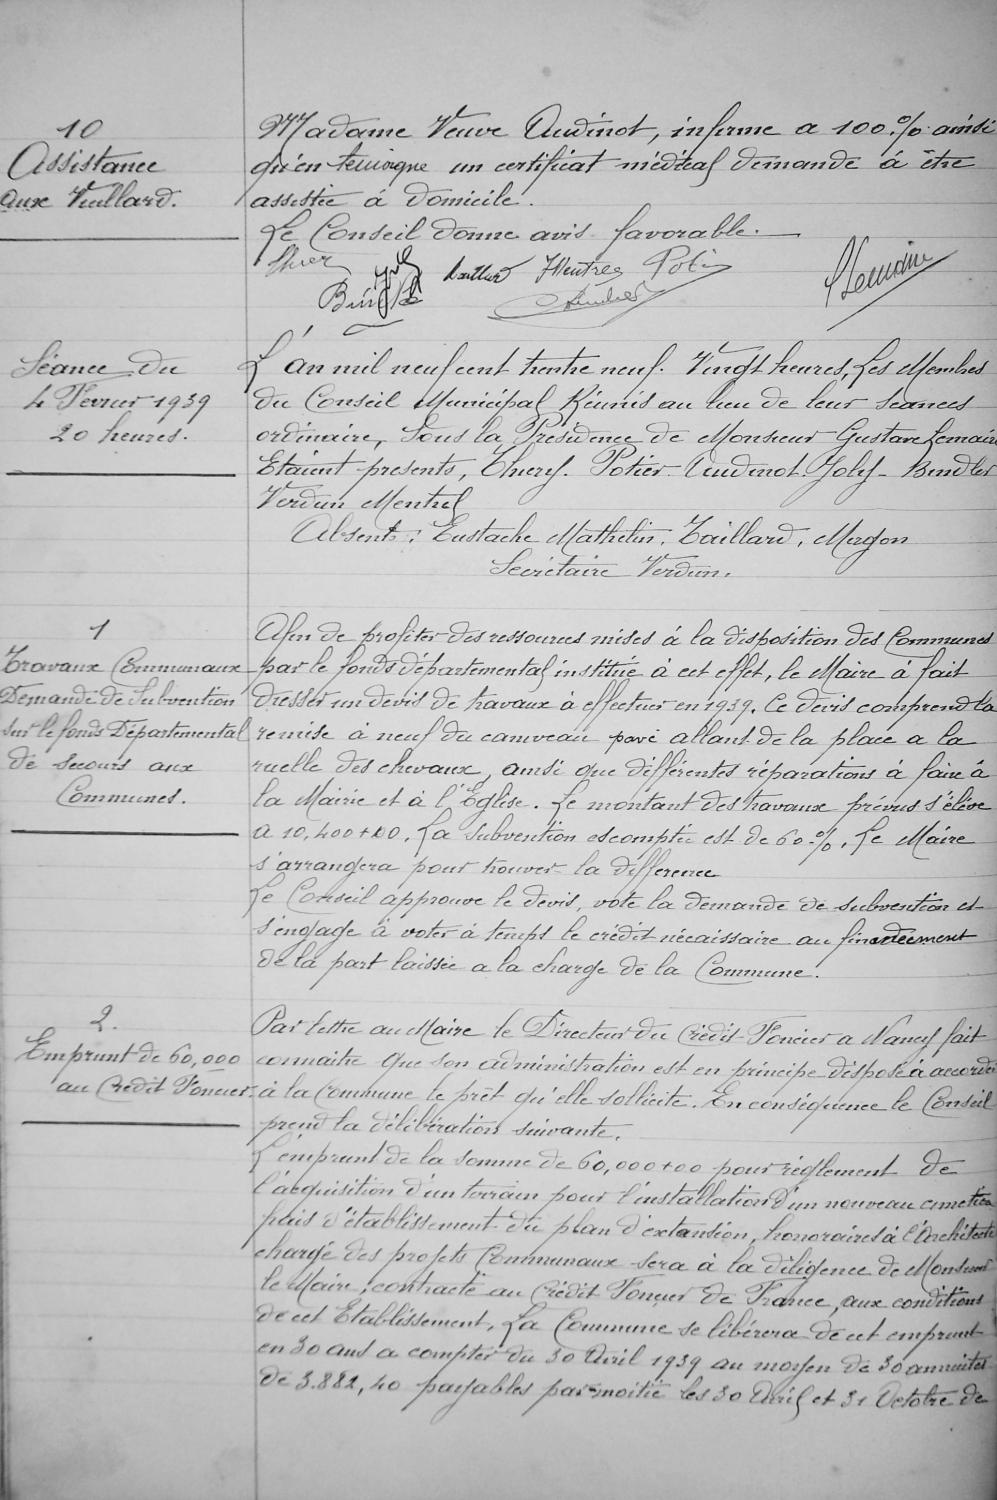 10
Assistance
aux Vieillard.
Madame Veuve Audinot, infirme a 100% ainsi
qu'en temoigne un certificat médical demande à être
assistée à domicile.
Le Conseil donne avis favorable.
Potier
GLemaire
Séance du
4 Fevrier 1939
20 heures.
L'an mil neuf cent trente neuf. Vingt heures, Les Membres
du Conseil Municipal Réunis au lieu de leur seances
ordinaire, Sous la Présidence de Monsieur Gustave Lemaire
Etaient présents, Thiery. Potier. Audinot. Joly. Bindler
Verdun Mentrel
Absents: Eustache Mathelin. Taillard, Mugon
Secrétaire Verdun.
1
Travaux Communaux
Demande de Subvention
sur le fonds Départemental
de secours aux
Communes.
Afin de profiter des ressources mises à la disposition des Communes
par le fonds départemental institué à cet effet, le Maire à fait
dresser un devis de travaux à effectuer en 1939. Ce devis comprend la
remise à neuf du canniveau pavé allant de la place a la
ruelle des chevaux, ainsi que différentes réparations à faire à
la Mairie et à l'Eglise. Le montant des travaux prévus s'élève
a 10,400+00. La Subvention escomptée est de 60%. Le Maire
s'arrangera pour trouver la difference
Le Conseil approuve le devis, vote la demande de subvention et
s'engage à voter à temps le crédit nécaissaire au financement
de la part laissée a la charge de la Commune.
2.
Emprunt de 60,000
au Crédit Foncier.
Par lettre au Maire le Directeur du Crédit Foncier a Nancy fait
connaitre que son administration est en principe disposé à accorder
à la Commune le prêt qu'elle sollicite. En conséquence le Conseil
prend la délibération suivante.
L'emprunt de la somme de 60,000+00 pour réglement de
l'acquisition d'un terrain pour l'installation d'un nouveau cimetière
frais d'établissement du plan d'extansion, honoraires à l'Architecte
chargé des projets Communaux sera à la diligence de Monsieur
le Maire, contracté au Crédit Foncier de France, aux conditions
de cet Etablissement. La Commune se libérera de cet emprunt
en 30 ans a compter du 30 Avril 1939 au moyen de 30 annuités
de 3.882,40 payables par moitié les 30 Avril et 31 Octobre de